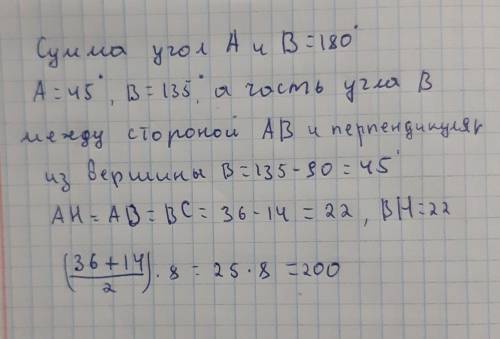 Сумма угол А и В = 180°
А = 45°, В = 135°, а часть угла В
между стороной АВ и перпендикуляр
из вершины В = 135 - 90 = 45°
АН = АВ = ВС = 36 - 14 = 22, ВН = 22
(36 + 14 / 2) · 8 = 25 · 8 = 200